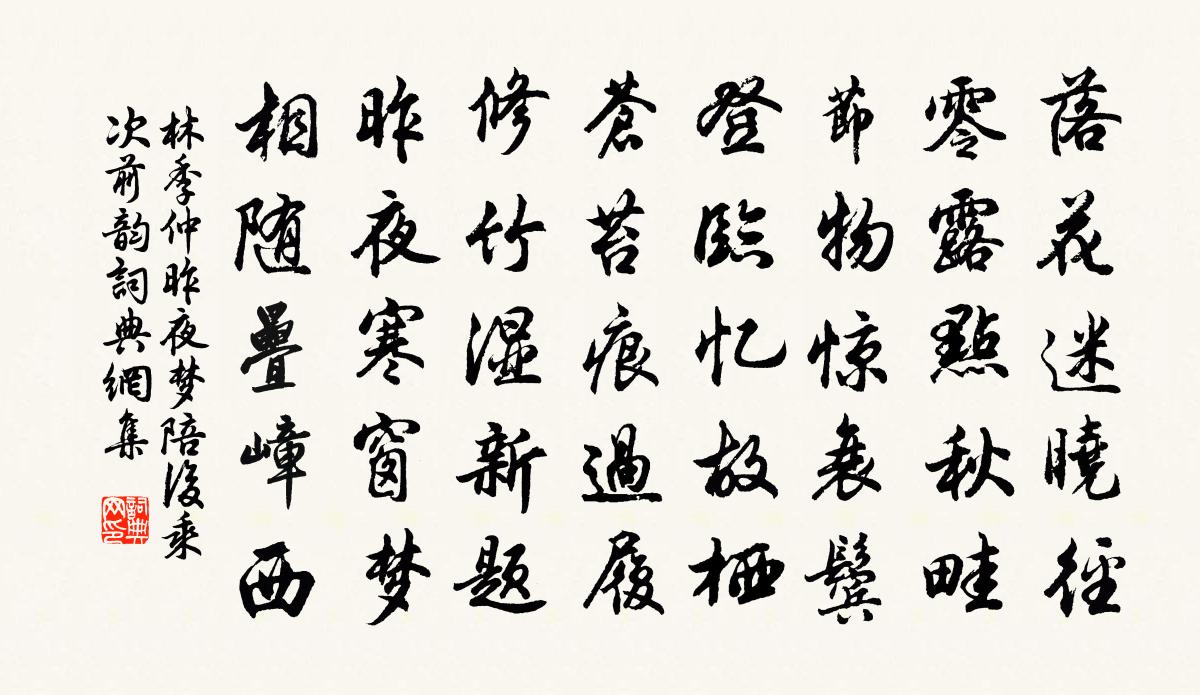 落花迷曉徑
零露點秋畦
節物惊衰鬓
登臨忆故栖
蒼苔痕過履
修竹湿新题
昨夜寒窗梦
相随疊嶂西
林季仲昨夜梦陪後乘
次前韵詞典網集
詞典
网印